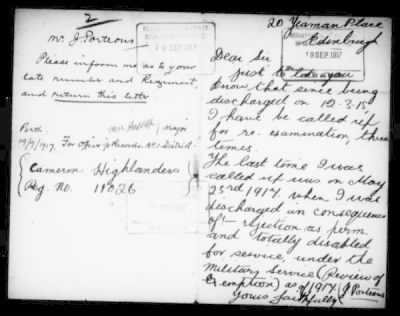 2
Mr. J. Porteous
Please inform me as to your
late number and Regiment
and return this letter.
Perth. Major
19/9/1917. For Officer i/c Records No. 1 District
Cameron Highlanders
Reg. No. 11826
20 Yeaman Place
Edinburgh
19 SEP. 1917
Dear Sir
Just to let you
know that since being
discharged on 12-3-15,
I have be called up
for re-examination, three
times.
The last time I was
called up was on May
23rd 1917 when I was
discharged in consequence
of rejection as perm.
and totally disabled
for service, under the
Military Service (Review of
Exemption) as of 1917. J Porteous
Yours Faithfully